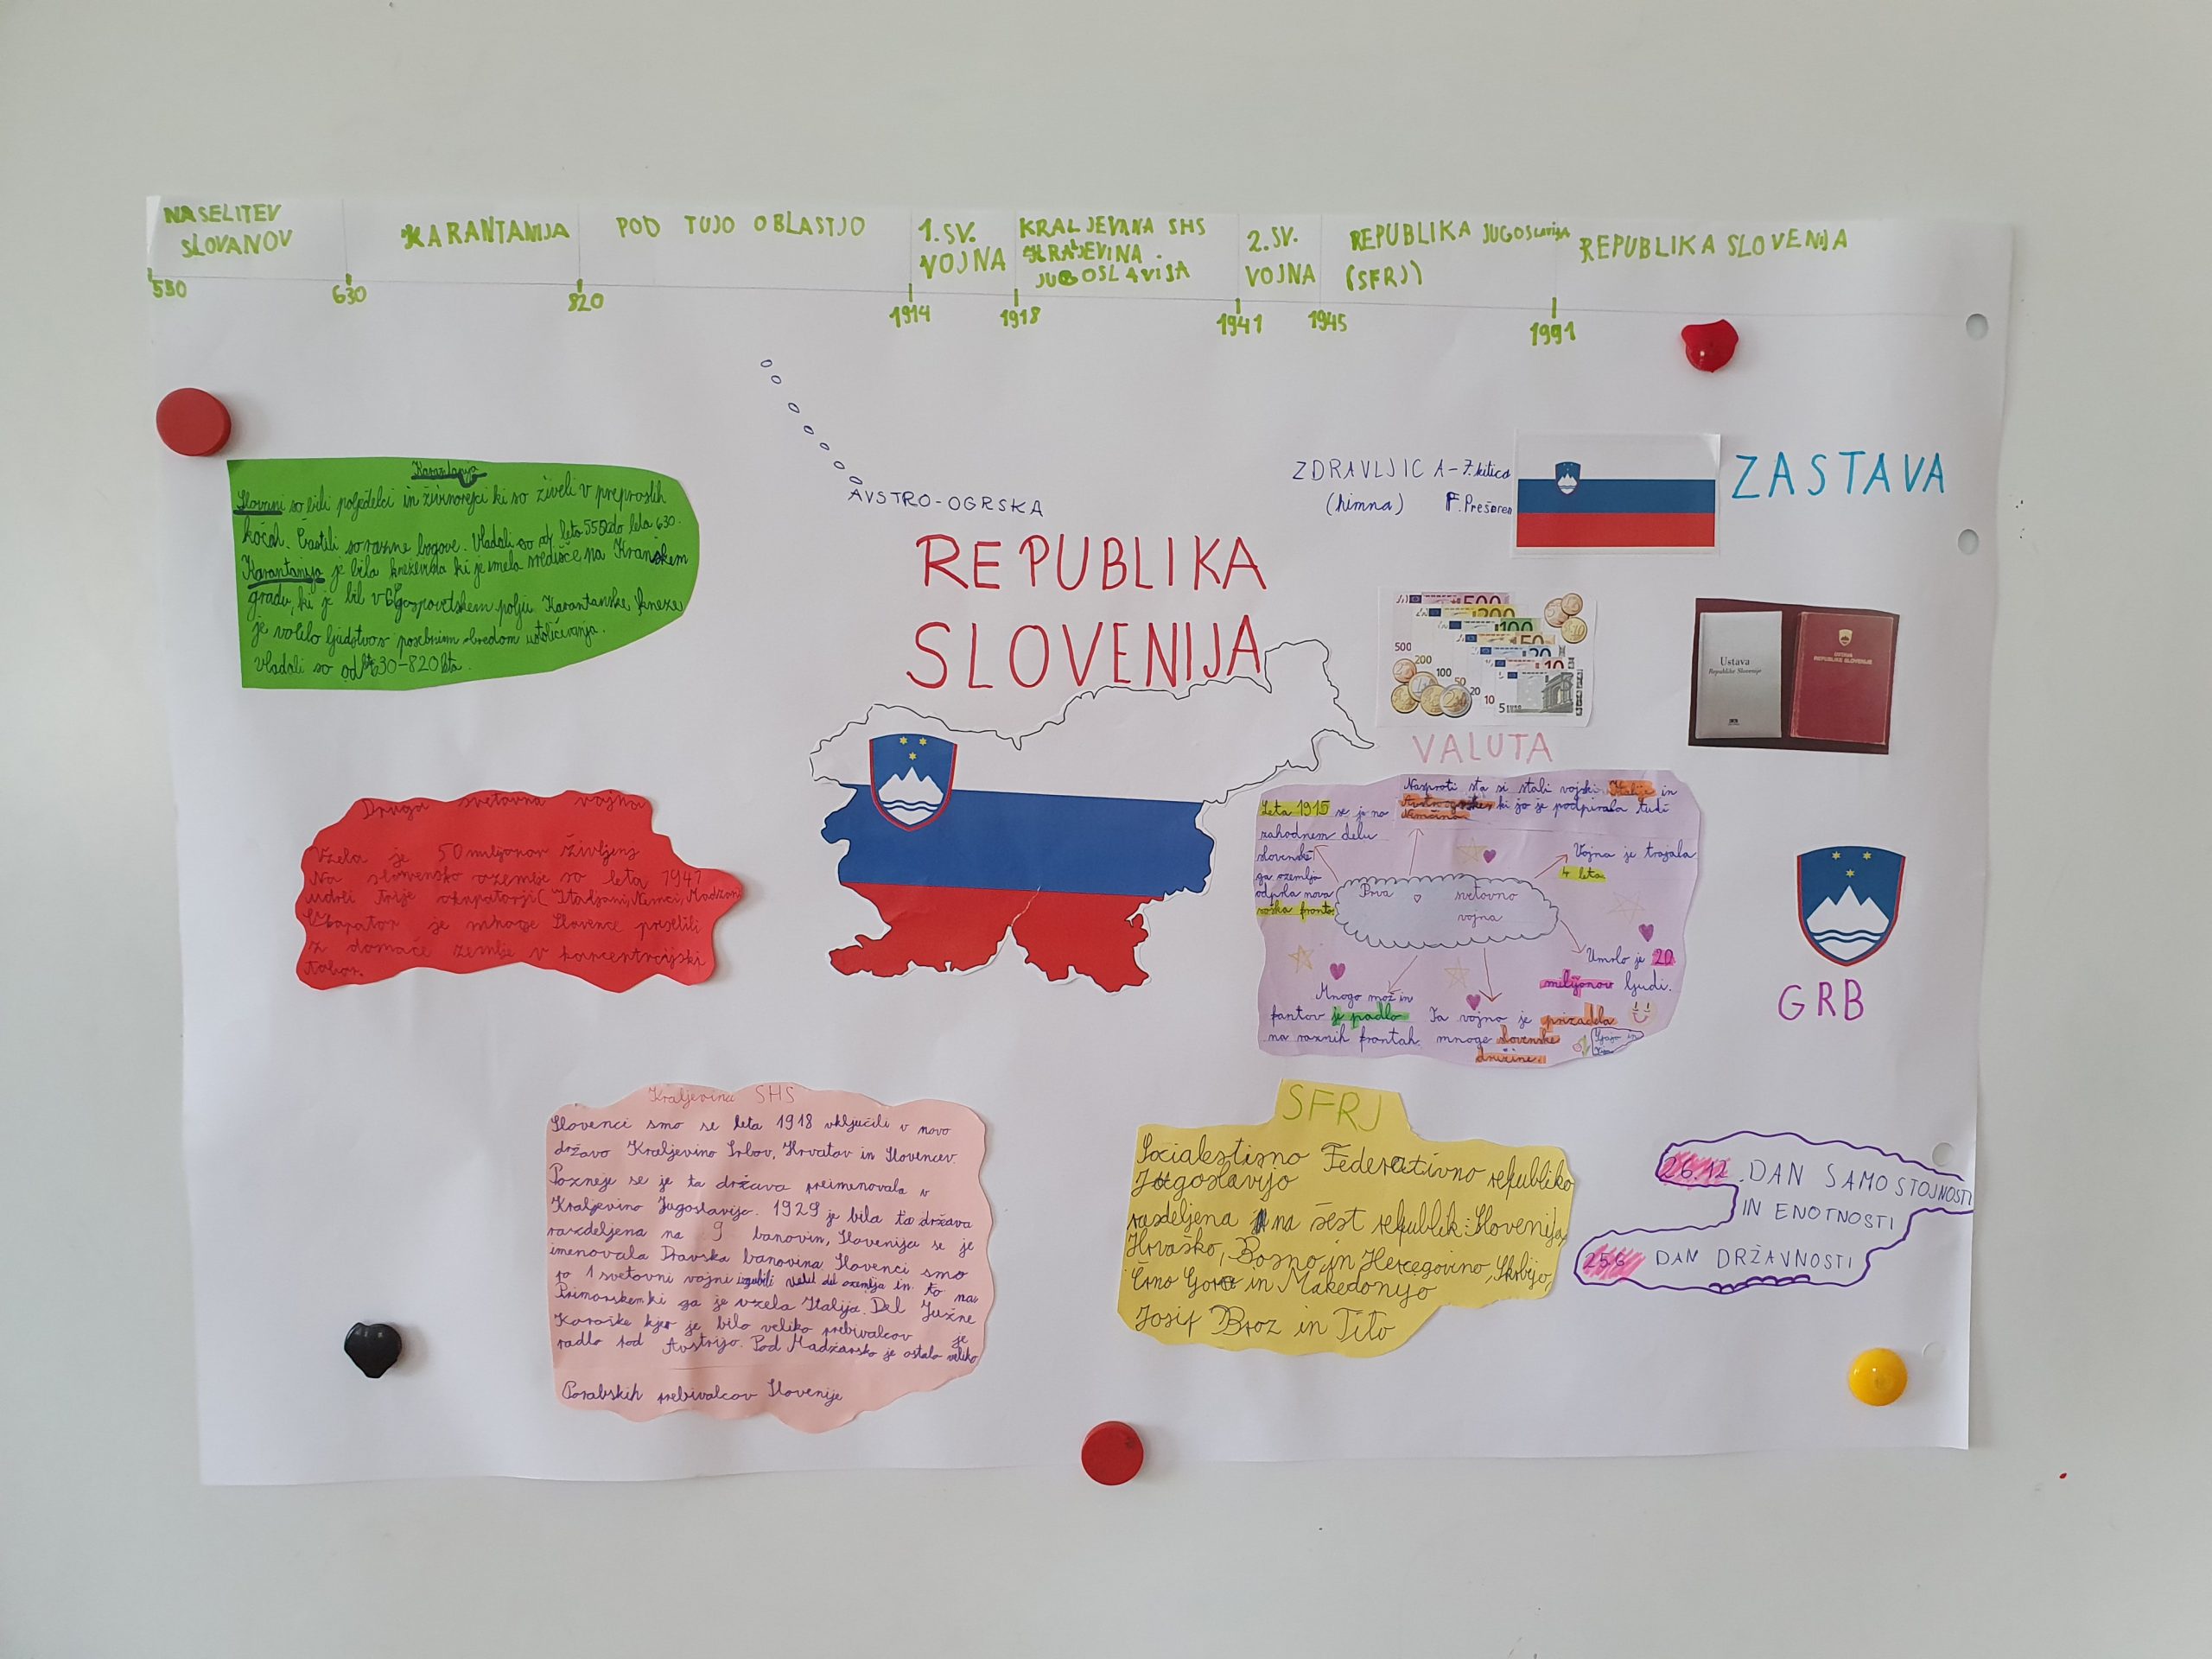 NASELITEV
SLOVANOV
KARANTANIJA
POD TUJO OBLASTJO
1. SV.
VOJNA
KRALJEVINA SHS
KRALJEVINA
JUGOSLAVIJA
2. SV.
VOJNA
REPUBLIKA JUGOSLAVIJA
(SFRJ)
REPUBLIKA SLOVENIJA
550
630
820
1914
1918
1941
1945
1991
AVSTRO-OGRSKA
REPUBLIKA
SLOVENIJA
ZDRAVLJICA-7. kitica
(himna) F. Prešeren
ZASTAVA
Karantanija
Slovani so bili poljedelci in živinorejci ki so živeli v preprostih
kočah. Častili so razne bogove. Vladali so od leta 550 do leta 630.
Karantanija je bila kneževina ki je imela središče na Kranskem
gradu, ki je bil v Gosposvetskem polju Karantanske kneze
je volilo ljudstvo s posebnim obredom ustoličevanja.
Vladali so od 630-820 leta.
500
200
100
50
20
10
5
VALUTA
Ustava
Republike Slovenije
USTAVA
REPUBLIKE SLOVENIJE
Druga svetovna vojna
Vzela je 50 miljonov življenj
Na slovensko ozemlje so leta 1941
udrli trije okupatorji (Italijani, Nemci, Madžari
Okupator je mnoge Slovence preselili
z domače zemlje v koncentrcijski
tabor.
Leta 1915 se je na
zahodnem delu
slovenske
ga ozemlja
odprla nova
soška fronta
Nasproti sta si stali vojski Italije in
Avstroogrske, ki jo je podpirala tudi
Nemčina
Vojna je trajala
4 leta
Prva svetovno
vojna
Umrlo je 20
milijonov ljudi.
Mnogo mož in
fantov je padlo
na raznih frontah.
Ta vojna je prizadela
mnoge slovenske
družine.
GRB
Kraljevina SHS
Slovenci smo se leta 1918 vključili v novo
državo Kraljevino Srbov, Hrvatov in Slovencev.
Pozneje se je ta država preimenovala v
Kraljevino Jugoslavijo. 1929 je bila ta država
razdeljena na 9 banovin, Slovenija se je
imenovala Dravska banovina Slovenci smo
po 1 svetovni vojni izgubili velik del ozemlja in to na
Primorskem ki ga je vzela Italija. Del Južne
Koroške kjer je bilo veliko prebivalcov je
padlo pod Avstrijo. Pod Madžarsko je ostalo veliko
Porabskih prebivalcov Slovenije
SFRJ
Socialestisno Federativno republiko
Jugoslavijo
razdeljena na šest republik: Slovenijo,
Hrvaško, Bosno in Hercegovino, Srbijo,
Črno Goro in Makedonijo
Josif Broz in Tito
26.12. DAN SAMOSTOJNOSTI
IN ENOTNOSTI
25.6 DAN DRŽAVNOSTI